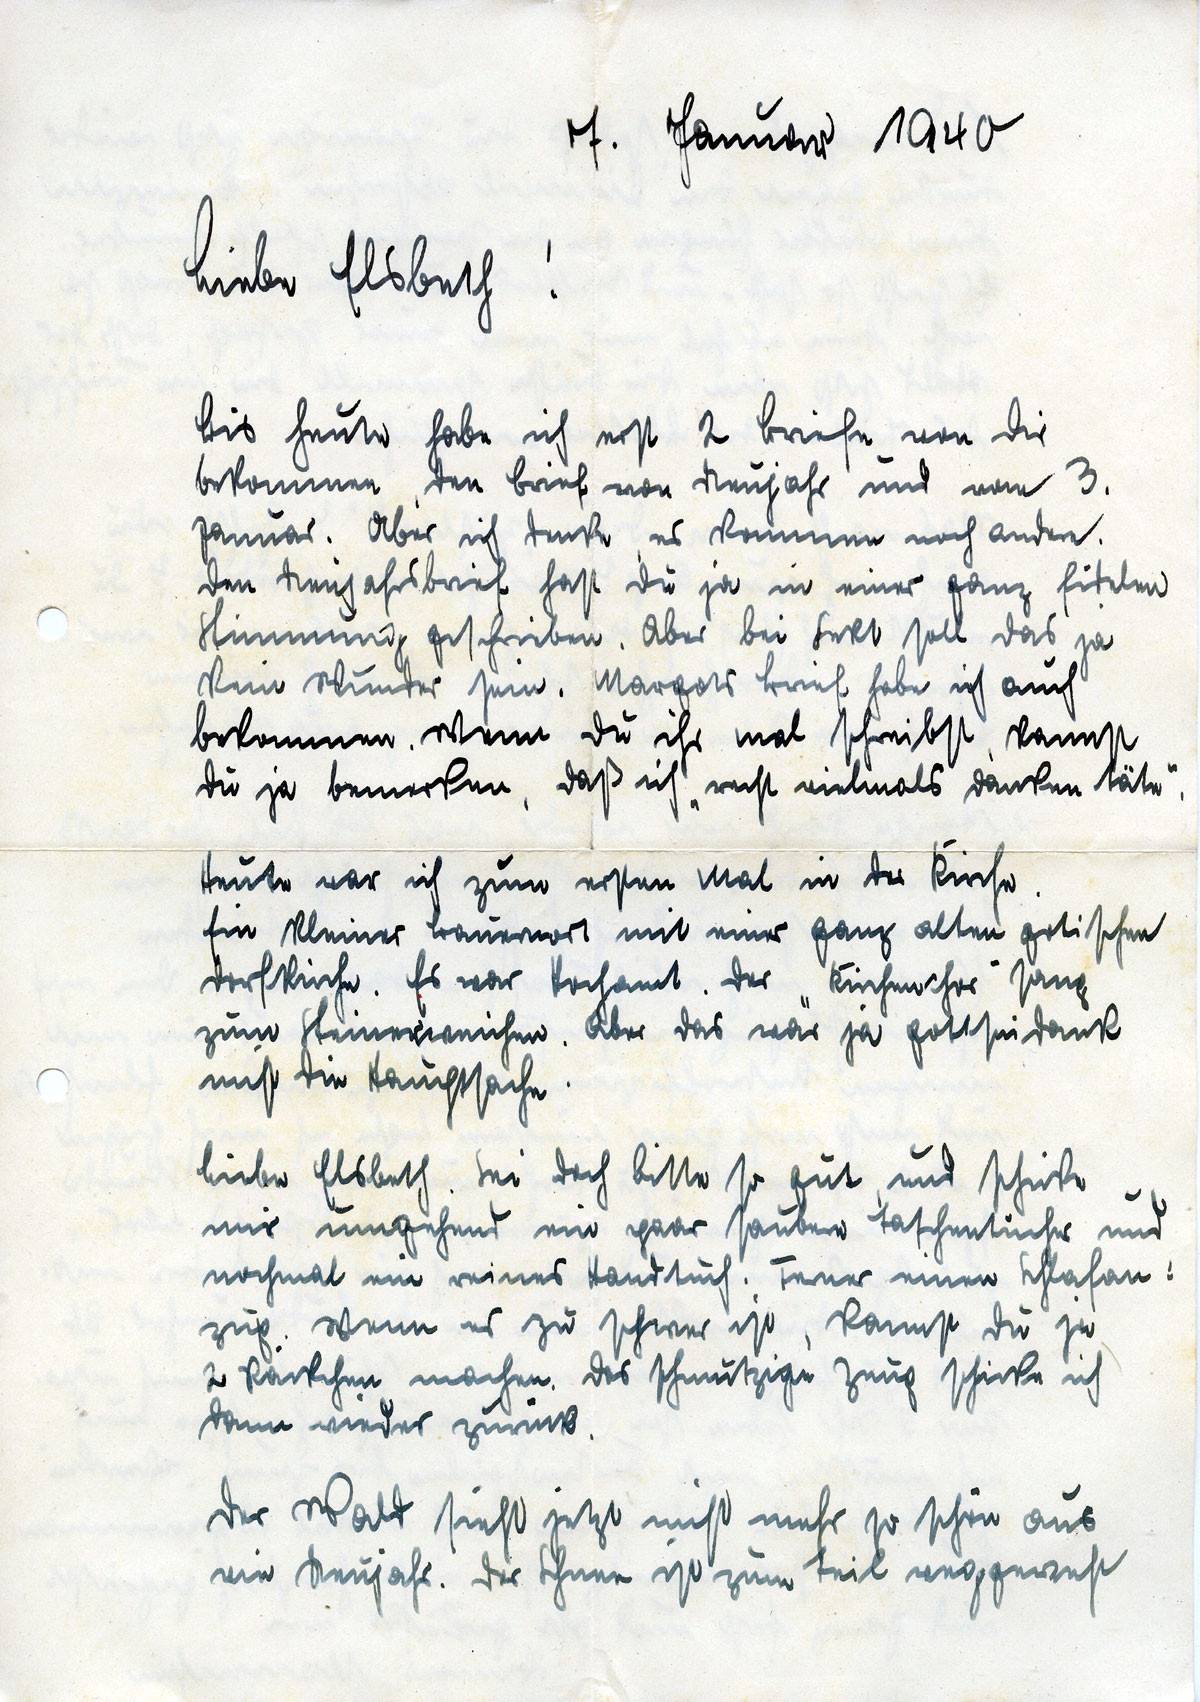 7. Januar 1940
Liebe Elsbeth!
Bis heute habe ich erst 2 Briefe von Dir
bekommen, den Brief von Neujahr und vom 3.
Januar. Aber ich denke, es kommen noch andere.
Den Neujahrsbrief hast Du ja in einer ganz fidelen
Stimmung geschrieben. Aber bei Sekt soll das ja
kein Wunder sein. Margots Brief habe ich auch
bekommen. Wenn Du ihr mal schreibst, kannst
Du ja bemerken, daß ich „recht vielmals danken täte".
Heute war ich zum ersten Mal in der Kirche.
Ein kleiner Bauernort mit einer ganz alten gotischen
Dorfkirche. Es war Hochamt. Der „Kirchenchor" sang
zum Steinerweichen. Aber das war ja gottseidank
nicht die Hauptsache.
Liebe Elsbeth. Sei doch bitte so gut, und schicke
mir umgehend ein paar saubere Taschentücher und
nochmal ein reines Handtuch. Ferner einen Schlafan=
zug. Wenn es zu schwer ist, kannst Du ja
2 Päckchen machen. Das schmutzige Zeug schicke ich
dann wieder zurück.
Der Wald sieht jetzt nicht mehr so schön aus
wie Neujahr. Der Schnee ist zum Teil weggeweht